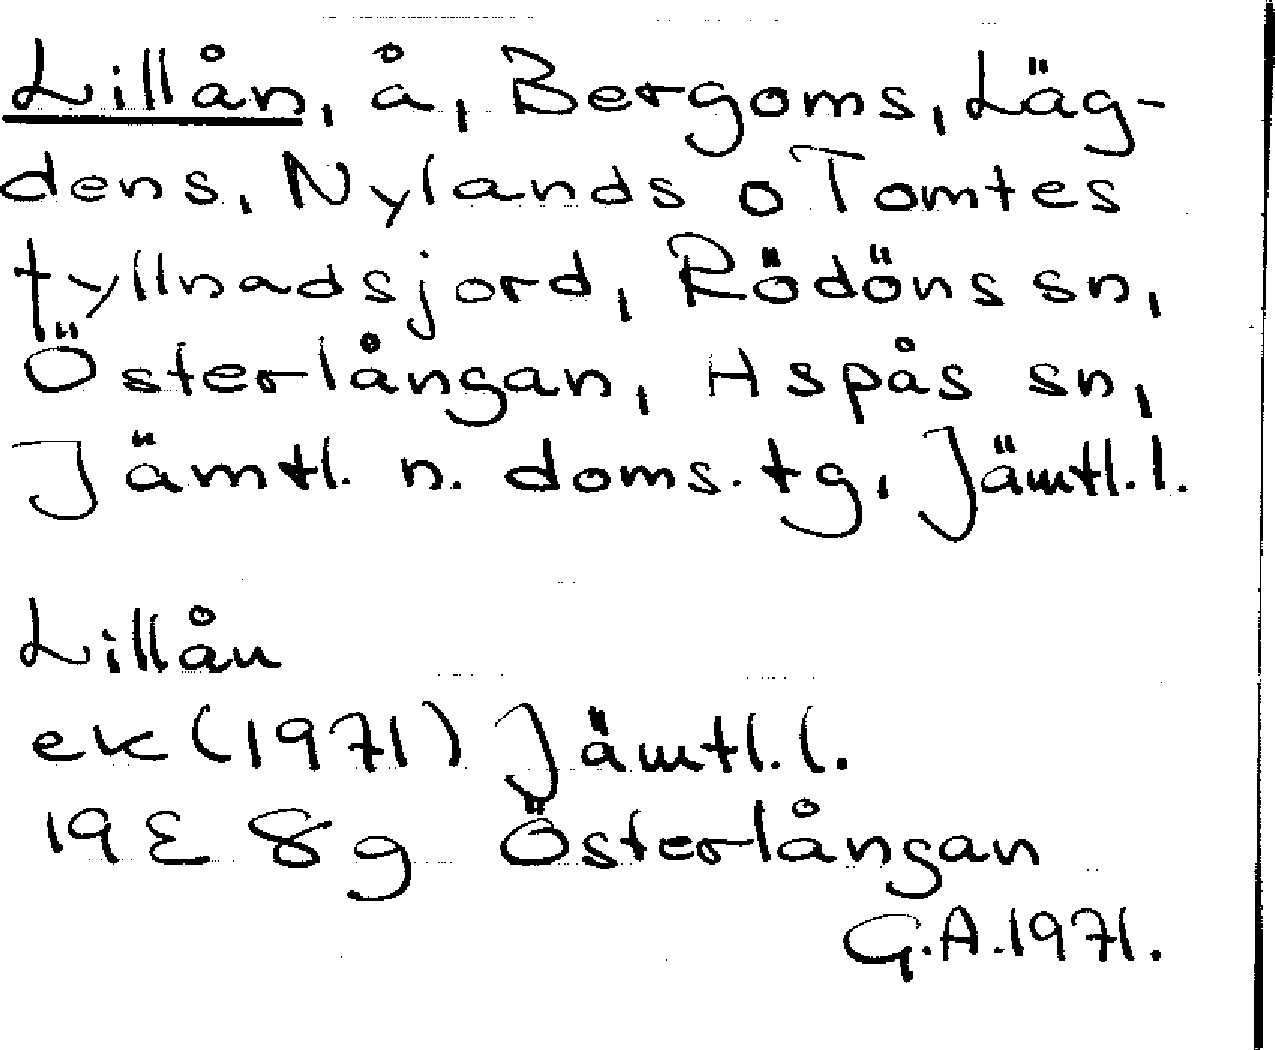 Lillån, å, Bergoms, Läg-
dens, Nylands o Tomtes
fyllnadsjord, Rödöns sn,
Österlångan, Aspås sn,
Jämtl. n. doms. tg, Jämtl. l.
Lillån
ek (1971) Jämtl. l.
19E 8g Österlångan
G.A. 1971.